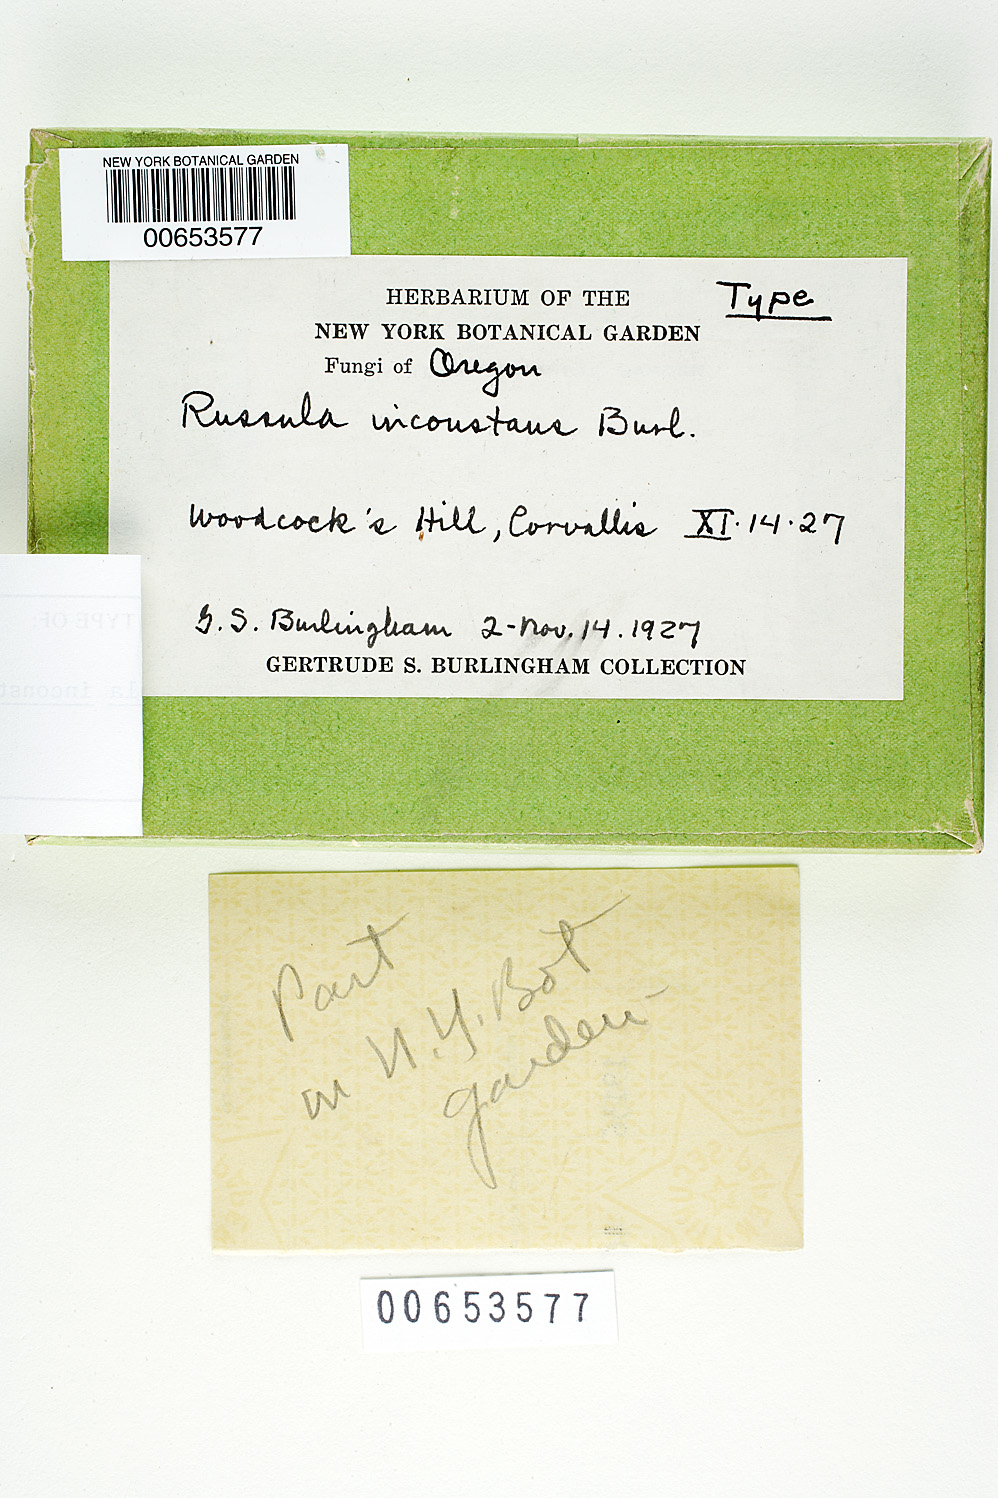 NEW YORK BOTANICAL GARDEN
00653577
Type
HERBARIUM OF THE
NEW YORK BOTANICAL GARDEN
Fungi of Oregon
Russula inconstans Burl.
Woodcock's Hill, Corvallis XI·14·27
TYPE OF:
G. S. Burlingham 2-Nov. 14. 1927
GERTRUDE S. BURLINGHAM COLLECTION
Part
in N.Y. Bot
garden
00653577